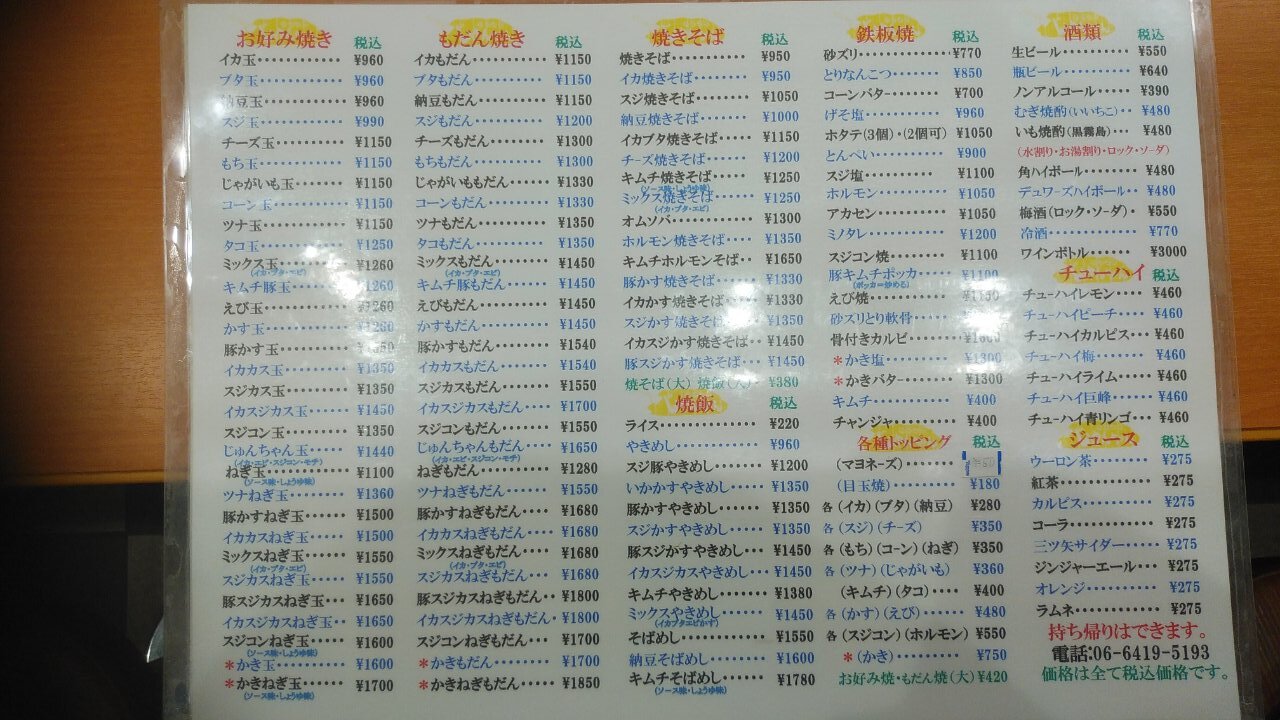 お好み焼き 税込
イカ玉············ ¥960
ブタ玉············ ¥960
納豆玉············ ¥960
スジ玉············ ¥990
チーズ玉·········· ¥1150
もち玉············ ¥1150
じゃがいも玉······ ¥1150
コーン玉·········· ¥1150
ツナ玉············ ¥1150
タコ玉············ ¥1250
ミックス玉········ ¥1260
(イカ・ブタ・エビ)
キムチ豚玉········ ¥1260
えび玉············ ¥1260
かす玉············ ¥1260
豚かす玉··········
イカカス玉········ ¥1350
スジカス玉········ ¥1350
イカスジカス玉···· ¥1450
スジコン玉········ ¥1350
じゅんちゃん玉···· ¥1440
(イカ・エビ・スジコン・モチ)
ねぎ玉············ ¥1100
(ソース味・しょうゆ味)
ツナねぎ玉········ ¥1360
豚かすねぎ玉······ ¥1500
イカカスねぎ玉···· ¥1500
ミックスねぎ玉···· ¥1550
(イカ・ブタ・エビ)
スジカスねぎ玉···· ¥1550
豚スジカスねぎ玉·· ¥1650
イカスジカスねぎ玉·· ¥1650
スジコンねぎ玉···· ¥1600
(ソース味・しょうゆ味)
*かき玉·········· ¥1600
*かきねぎ玉······ ¥1700
(ソース味・しょうゆ味)
もだん焼き 税込
イカもだん·········· ¥1150
ブタもだん·········· ¥1150
納豆もだん·········· ¥1150
スジもだん·········· ¥1200
チーズもだん········ ¥1300
もちもだん·········· ¥1300
じゃがいももだん···· ¥1330
コーンもだん········ ¥1330
ツナもだん·········· ¥1350
タコもだん·········· ¥1350
ミックスもだん······ ¥1450
(イカ・ブタ・エビ)
キムチ豚もだん······ ¥1450
えびもだん·········· ¥1450
かすもだん·········· ¥1450
豚かすもだん········ ¥1540
イカカスもだん······ ¥1540
スジカスもだん······ ¥1550
イカスジカスもだん···· ¥1700
スジコンもだん······ ¥1550
じゅんちゃんもだん···· ¥1650
(イカ・エビ・スジコン・モチ)
ねぎもだん·········· ¥1280
ツナねぎもだん······ ¥1550
豚かすねぎもだん···· ¥1680
イカカスねぎもだん···· ¥1680
ミックスねぎもだん···· ¥1680
(イカ・ブタ・エビ)
スジカスねぎもだん··· ¥1680
豚スジカスねぎもだん·· ¥1800
イカスジカスねぎもだん· ¥1800
スジコンねぎもだん···· ¥1700
*かきもだん········ ¥1700
*かきねぎもだん···· ¥1850
焼きそば 税込
焼きそば·········· ¥950
イカ焼きそば······ ¥950
スジ焼きそば······ ¥1050
納豆焼きそば······ ¥1000
イカブタ焼きそば···· ¥1150
チーズ焼きそば···· ¥1200
キムチ焼きそば···· ¥1250
(ソース味・しょうゆ味)
ミックス焼きそば···· ¥1250
(イカ・ブタ・エビ)
オムソバ·········· ¥1300
ホルモン焼きそば···· ¥1350
キムチホルモン焼そば·· ¥1650
豚かす焼きそば···· ¥1330
イカかす焼きそば···· ¥1330
スジかす焼きそば···· ¥1350
イカスジかす焼きそば·· ¥1450
豚スジかす焼きそば··· ¥1450
焼そば(大) 焼飯(大)· ¥380
焼飯 税込
ライス············ ¥220
やきめし·········· ¥960
スジ豚やきめし···· ¥1200
いかかすやきめし··· ¥1350
豚かすやきめし···· ¥1350
スジかすやきめし··· ¥1350
豚スジかすやきめし··· ¥1450
イカスジカスやきめし·· ¥1450
キムチやきめし···· ¥1380
ミックスやきめし···· ¥1450
(イカブタエビかす)
そばめし·········· ¥1550
納豆そばめし······ ¥1600
キムチそばめし···· ¥1780
(ソース味・しょうゆ味)
鉄板焼 税込
砂ズリ············ ¥770
とりなんこつ······ ¥850
コーンバター······ ¥700
げそ塩············ ¥960
ホタテ(3個)・(2個可) ¥1050
とんぺい·········· ¥900
スジ塩············ ¥1100
ホルモン·········· ¥1050
アカセン·········· ¥1050
ミノタレ·········· ¥1200
スジコン焼········ ¥1100
豚キムチポッカ···· ¥1100
(ポッカー炒める)
えび焼············
砂ズリとり軟骨····
骨付きカルビ······
*かき塩·········· ¥1300
*かきバター······ ¥1300
キムチ············ ¥400
チャンジャ········ ¥400
各種トッピング 税込
(マヨネーズ)······ ¥50
(目玉焼)·········· ¥180
各(イカ)(ブタ)(納豆) ¥280
各(スジ)(チーズ) ¥350
各(もち)(コーン)(ねぎ) ¥350
各(ツナ)(じゃがいも) ¥360
(キムチ)(タコ)···· ¥400
各(かす)(えび)······ ¥480
各(スジコン)(ホルモン) ¥550
*(かき)·········· ¥750
お好み焼・もだん焼(大) ¥420
酒類 税込
生ビール·········· ¥550
瓶ビール·········· ¥640
ノンアルコール···· ¥390
むぎ焼酎(いいちこ)·· ¥480
いも焼酎(黒霧島)··· ¥480
(水割り・お湯割り・ロック・ソーダ)
角ハイボール······ ¥480
デュワーズハイボール·· ¥480
梅酒(ロック・ソーダ)· ¥550
冷酒·············· ¥770
ワインボトル······ ¥3000
チューハイ 税込
チューハイレモン···· ¥460
チューハイピーチ···· ¥460
チューハイカルピス··· ¥460
チューハイ梅······ ¥460
チューハイライム···· ¥460
チューハイ巨峰···· ¥460
チューハイ青リンゴ··· ¥460
ジュース 税込
ウーロン茶········ ¥275
紅茶·············· ¥275
カルピス·········· ¥275
コーラ············ ¥275
三ツ矢サイダー···· ¥275
ジンジャーエール···· ¥275
オレンジ·········· ¥275
ラムネ············ ¥275
持ち帰りはできます。
電話:06-6419-5193
価格は全て税込価格です。